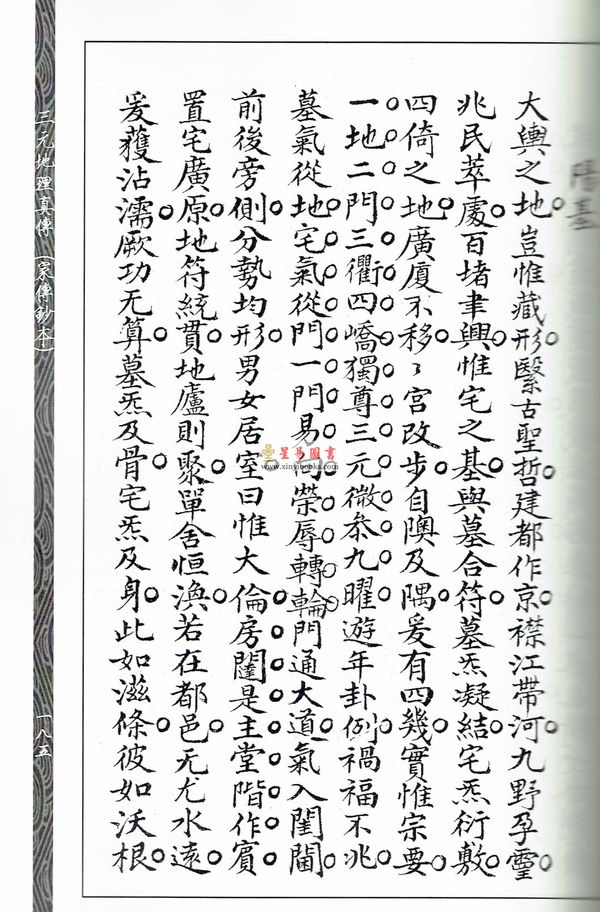 大輿之地。豈惟藏形。繄古聖哲。建都作京。襟江帶河。九野孕靈。
兆民萃處。百堵聿興。惟宅之基。與墓合符。墓炁凝結。宅炁衍敷。
四倚之地。廣廈不移。〻宮改步。自隩及隅。爰有四幾。實惟宗要。
一地二門三衢四嶠。獨尊三元。微參九曜。遊年卦例。禍福不兆。
墓氣從地。宅氣從門。一門易向。榮辱轉輪。門通大道。氣入閨閫。
前後旁側。分勢均形。男女居室。曰惟大倫。房闥是主。堂階作賓。
置宅廣原。地符統貫。地廬則聚。單舍恒渙。若在都邑。无尤水遠。
爰獲沾濡。厥功无算。墓炁及骨。宅炁及身。此如滋條。彼如沃根。
三元地理真傳（家傳鈔本）
一八五
星易圖書
www.xinyibooks.com